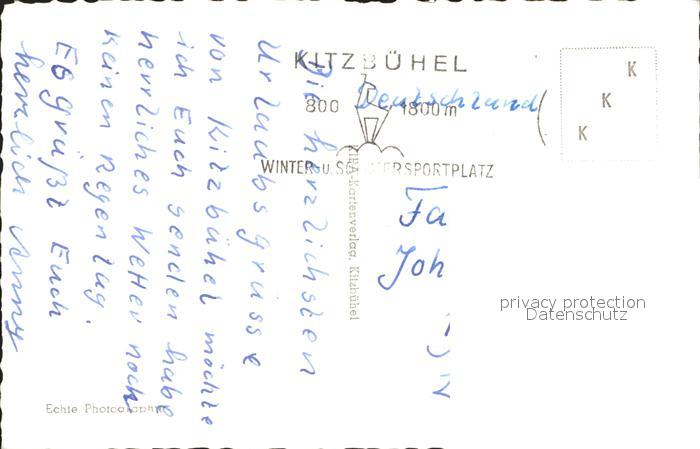 KITZBÜHEL
800 1800m
WINTER- u. SOMMERSPORTPLATZ
Deutschland
K
K
K
Die herzlichsten
Urlaubsgrüsse
von Kitzbühel möchte
ich Euch senden habe
herrliches Wetter noch
keinen Regentag.
Es grüßt Euch
herzlich Anny
Fa
Joh
KIRA-Kartenverlag, Kitzbühel
Echte Photographie
privacy protection
Datenschutz